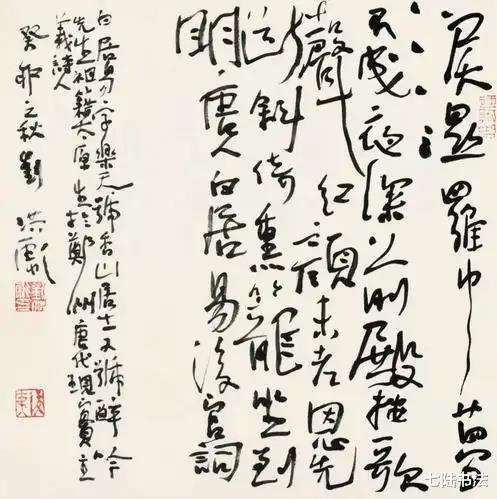 淚濕羅巾夢
不成夜深前殿按歌
聲紅顏未老恩先
斷斜倚熏籠坐到
明唐人白居易後宮詞
白居易字樂天號香山居士又號醉吟
先生祖籍太原生於鄭州唐代現實主
義詩人
癸卯之秋劉洪彪
七陆书法